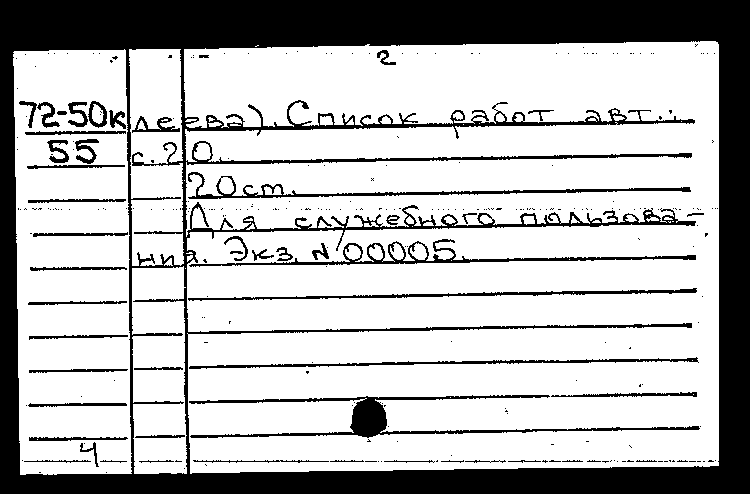 2
72-50к леева). Список работ авт.:
55 с. 20.
20 cm.
Для служебного пользова-
ния. Экз. №00005.
4